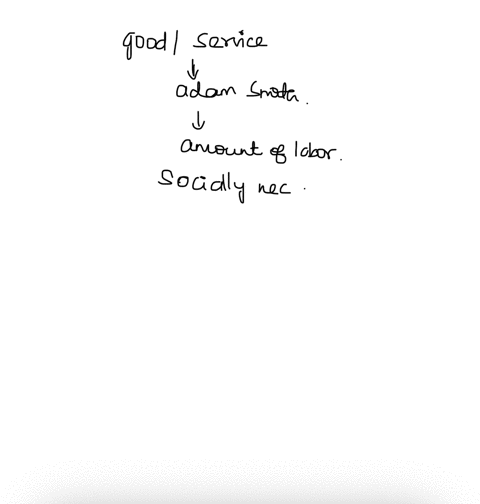 good/ service
↓
adam Smith.
↓
amount of labor.
Socially nec.